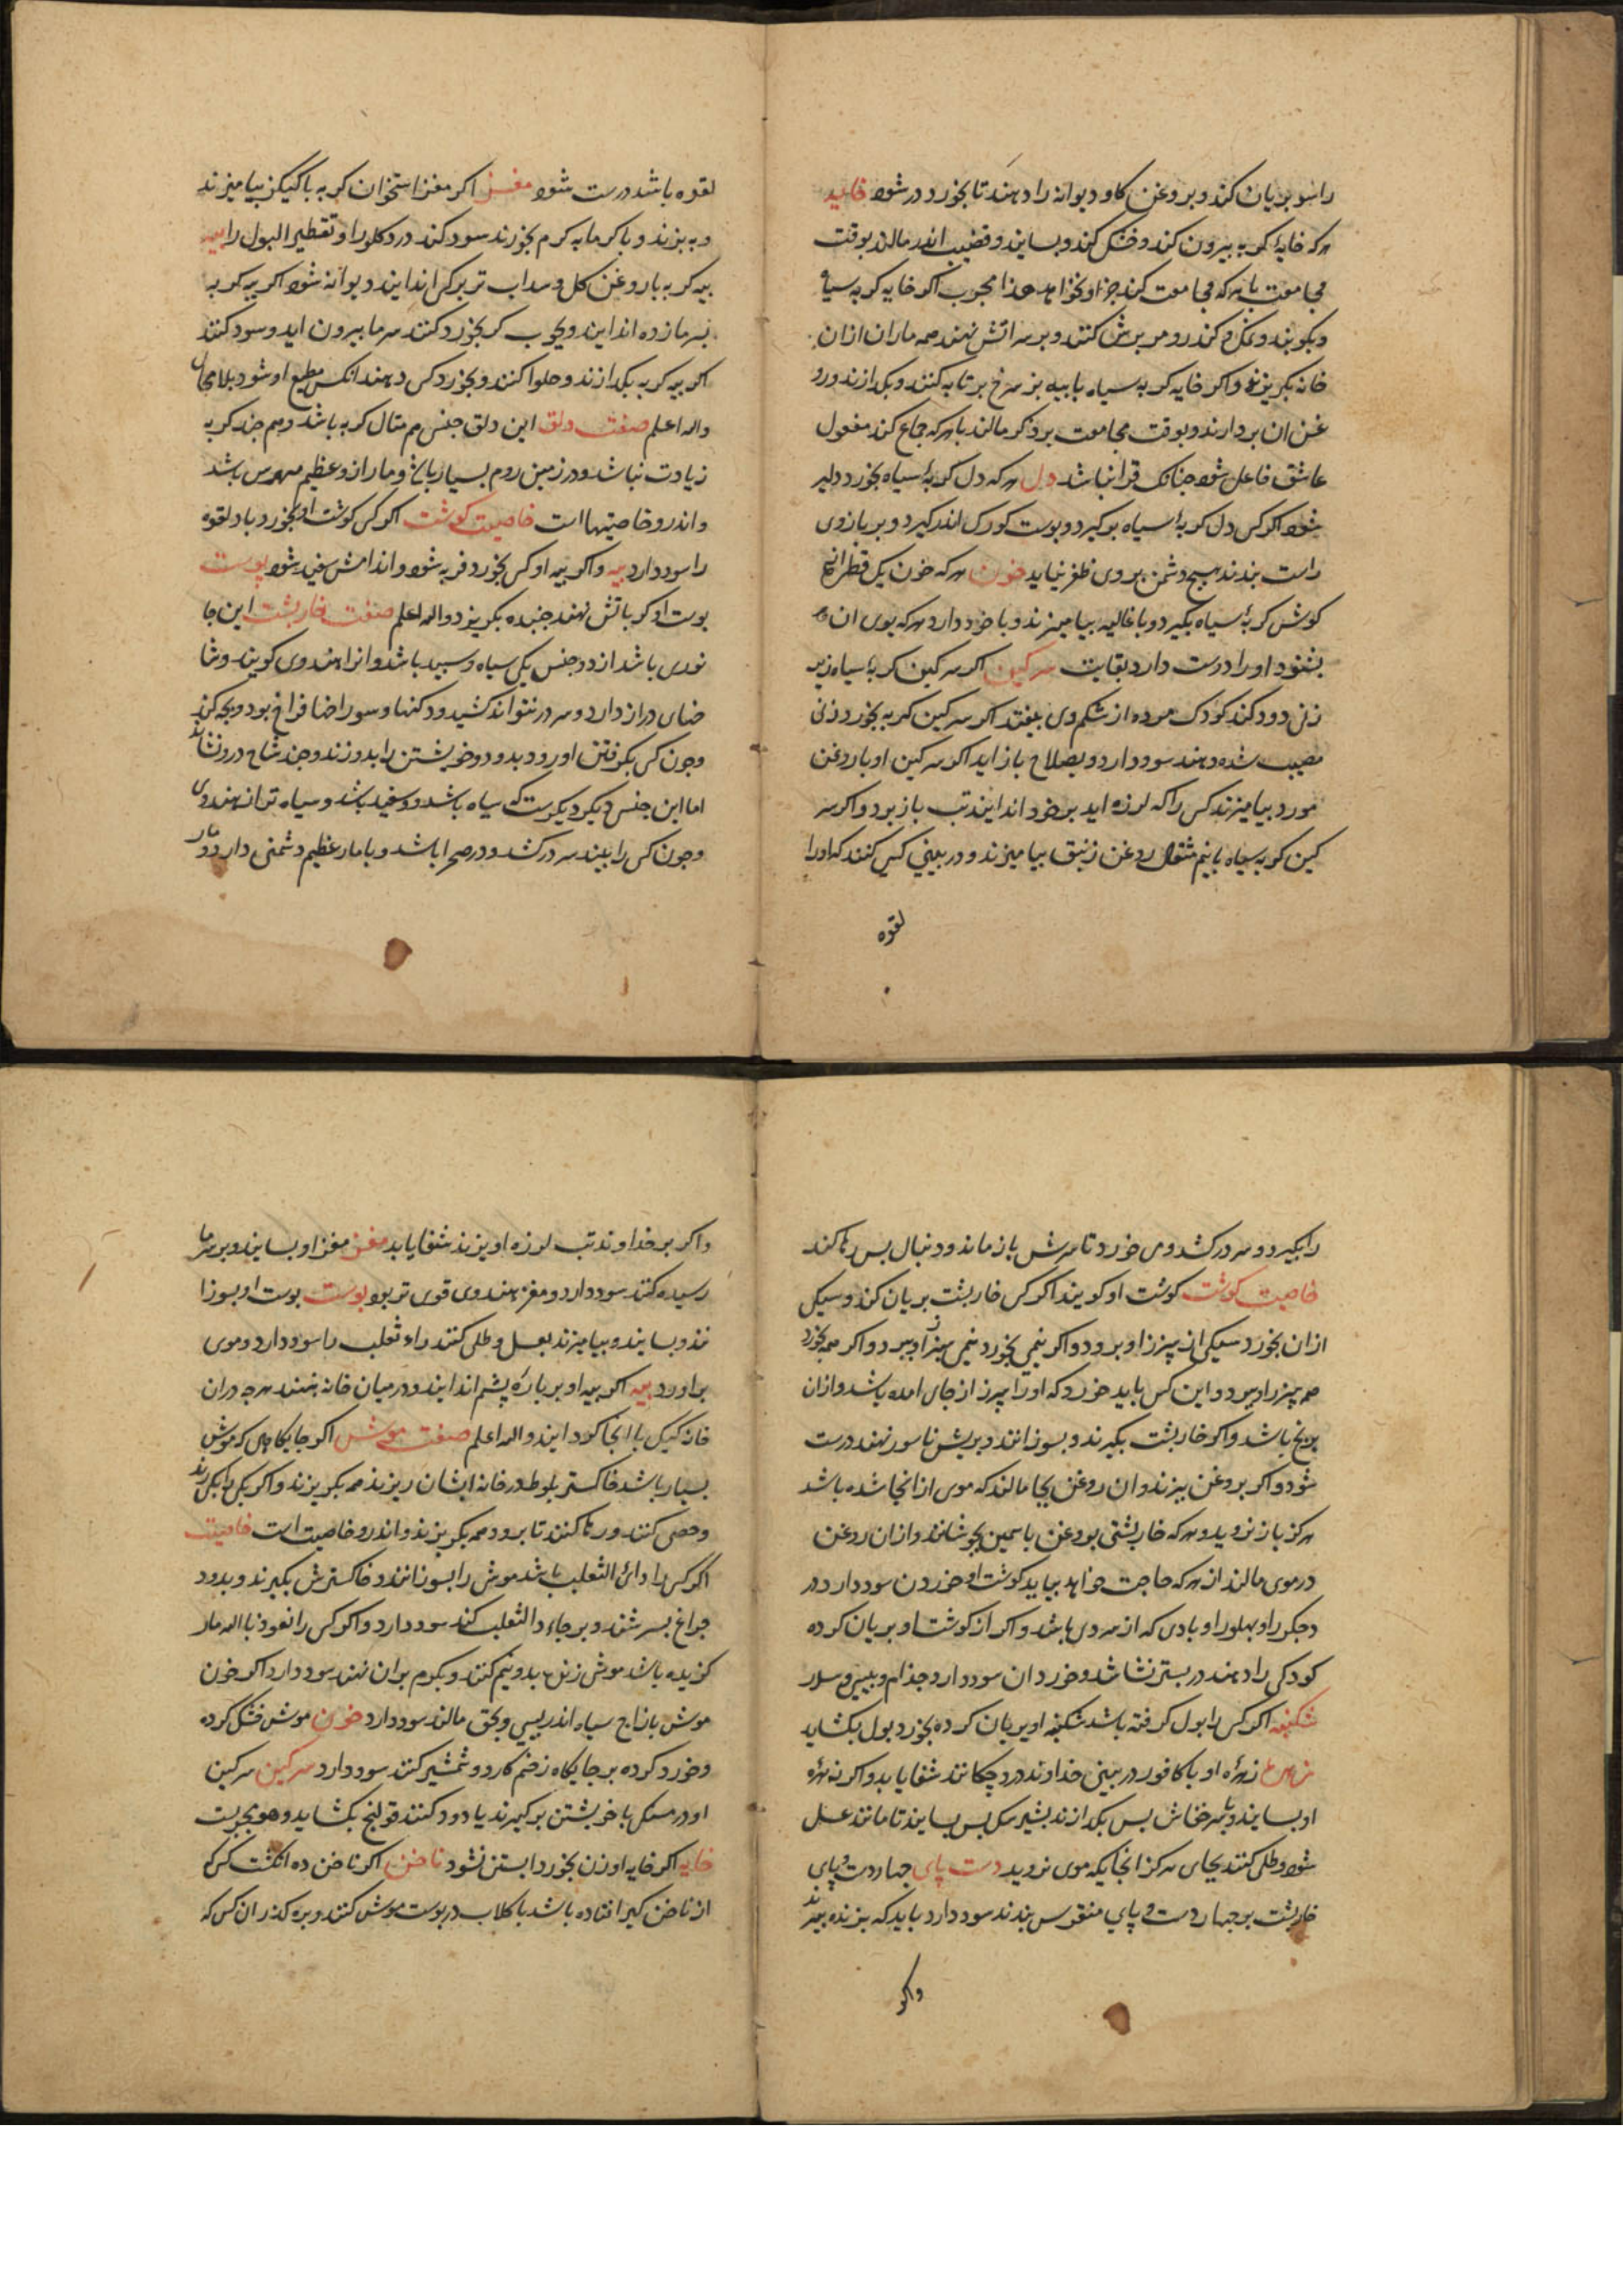 راسو بریان کند و بروغن کاو دیوانه را دهند تا بخورد درست شود خایه
هرکه خایهٔ کربه بیرون کند و خشک کند و بسایند و قضیب اندر مالد بوقت
مجامعت با هرکه مجامعت کند جز او نخواهد هذا مجرب اکر خایه کربه سیاه
و بکوبند و نمک کند و بر سر اتش نهند همه ماران ازان
خانه بکریزند و اکر خایه کربه سیاه با پیه بز سرخ بر تابه کنند و بکدازند و رو
غن ان بردارند و بوقت مجامعت بر ذکر مالند با هرکه جماع کند مفعول
عاشق فاعل شود جنانک قرار نباشد دل هرکه دل کربهٔ سیاه بخورد دلیر
شود اکر کسی دل کربهٔ سیاه بوکیرد و پوست کورک اندر کیرد و بر بازوی
راست بندند هیج دشمن بروی ظفر نیابد خون هرکه خون یک قطره از
کوش کربهٔ سیاه بکیرد و با غالیه بیامیزند و با خود دارد هرکه بوی ان
بشنود او را دوست دارد بغایت سرکین اکر سرکین کربهٔ سیاه زیر
زنی دود کند کودک مرده از شکم وی بیفتد اکر سرکین کربه بخورد زنی
مصیب شده دهند سود دارد و بصلاح باز اید اکر سرکین او با روغن
مورد بیامیزند کسی را که لرزه اید بر خود اندایند تب باز برد و اکر سر
کین کربه سیاه با نیم مثقال روغن زنبق بیامیزند و در بینی کسی کنند که او را
لقوه
لقوه باشد درست شود مغز اکر مغز استخوان کربه با کیکیز بیامیزند
و بپزند و با کرمابه کرم بخورند سود کند درد کلو را و تقطیر البول را پیه
پیه کربه با روغن کل و سداب تر بر کی اندایند دیوانه شود اکر پیه کربه
بسرمازده اندایند و بجوب کز بخورد کنند سرما بیرون اید و سود کند
اکر پیه کربه بکدازند و حلوا کنند و بخورد کسی دهند انکس مطیع او شود بلا محال
والله اعلم صفت دلق این دلق جنس هم مثال کربه باشد و هم جند کربه
زیادت نباشد و در زمین روم بسیار باشد و ماران و عظیم باشد
و اندرو خاصیتهااست خاصیت کوشت اکر کسی کوشت او بخورد باد لقوه
را سود دارد پیه و اکر پیه او کسی بخورد فربه شود و اندامش سفید شود پوست
پوست او کر باتش نهند جنبنده بکریزد والله اعلم صفت خارپشت این جا
نوری باشد از دو جنس یکی سیاه و سپید باشد و انرا هندوی کویند و شا
خهای دراز دارد و سر در نتواند کشید و دکنها و سوراخها فراخ بود و بجه کند
وجون کسی بکرفتن او رود بدود و خویشتن را بدو زند و جند شاخ درو نشاند
اما این جنس دیکر دیکرست که سیاه باشد و سفید باشد و سیاه تر از هندوی
وجون کسی را بیند سر در کشد و در صحرا باشد و با مار عظیم دشمنی دارد و مار
را بکیرد و سر در کشد و می خورد تا سرش باز ماند و دنبال بس رها کند
خاصیت کوشت کوشت او کویند اکر کسی خارپشت بریان کند و سیکی
ازان بخورد سیکی از سپرز او برود و اکر نیمی بخورد نیمی سپرز او ببرد و اکر همه بخورد
همه سپرز او ببرد و این کس باید خورد که او را سپرز از جای امده باشد و ازان
برنج باشد و اکر خارپشت بکیرند و بسوزانند و بریش ناسور نهند درست
شود و اکر بروغن بپزند وان روغن بجا مالند که موی از انجا شده باشد
هرکز باز نروید و هرکه خارپشتی بروغن یاسمین بجوشانند و ازان روغن
در موی مالند از هرکه حاجت خواهد بیابد کوشت او خوردن سود دارد درد
جکر را و پهلو را و بادی که از سردی باشد و اکر از کوشت او بریان کرده
کودکی را دهند در بستر نشاشد و خوردان سود دارد جذام و پیس و سلار
شکنبه اکر کسی را بول کرفته باشد شکنبه او بریان کرده بخورد بول بکشاید
زهره زهرهٔ او با کافور در بینی خداوند درد جکانند شفا یابد و اکر زهرهٔ
او بسایند و بثمر خفاش بس بکدازند بشیر سک بس بسایند تا مانند عسل
شود و طلی کنند بجای هرکز انجایکه موی نروید دست پای جهار دست و پای
خارپشت بر جهار دست و پای منقرس بندند سود دارد باید که بزنده ببرند
واکر
واکر بر خداوند تب لرزه اویزند شفا یابد مغز مغز او بسایند و بر سرما
رسیده کنند سود دارد و مغز هندوی قوی تر بود پوست پوست او بسوزا
نند و بسایند و بیامیزند بعسل و طلی کنند داء ثعلب را سود دارد و موی
براورد پیه اکر پیه او بر پارهٔ پشم اندایند و در میان خانه نهند هرجه دران
خانه کیک باشد انجا کرد ایند والله اعلم صفت موش اکر جایکاهی که موش
بسیار باشد خاکستر بلوط در خانه ایشان ریزند همه بکریزند و اکر یکی را بکیرند
وخصی کنند و رها کنند تا برود همه بکریزند و اندرو خاصیت است خاصیت
اکر کسی را داء الثعلب باشد موش را بسوزانند و خاکسترش بکیرند و بدود
جراغ بسرشند و بر جاء داالثعلب کنند سود دارد و اکر کسی را نعوذ بالله مار
کزیده باشد موش زنده بدو نیم کنند و بکرم بران نهند سود دارد اکر خون
موش با زاج سیاه اندر پیسی و بهق مالند سود دارد خون موش خشک کرده
وخورد کرده بر جایکاه زخم کارد و شمشیر کنند سود دارد سرکین سرکین
او در مسکه با خویشتن برکیرند یا دود کنند قولنج بکشاید و هو مجربست
خایه اکر خایه او زن بخورد ابستن نشود ناخن اکر ناخن ده انکشت کسی
از ناخن کیر افتاده باشد با کلاب در پوست موش کنند و بره کذر ان کس که